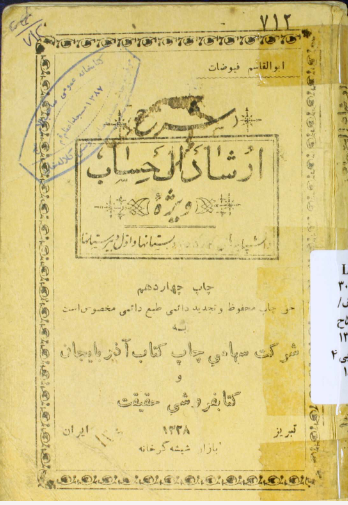 ۷۱۲
ابوالقاسم فیوضات
شرح
ارشاد الحساب
ویژهٔ
دبستانها و اول دبیرستانها
چاپ چهاردهم
حق چاپ محفوظ و تجدید دائمی طبع دائمی مخصوص است
به
شرکت سهامی چاپ کتاب آذربایجان
و
کتابفروشی حقیقت
تبریز ۱۳۳۸ ایران
بازار شیشه گرخانه